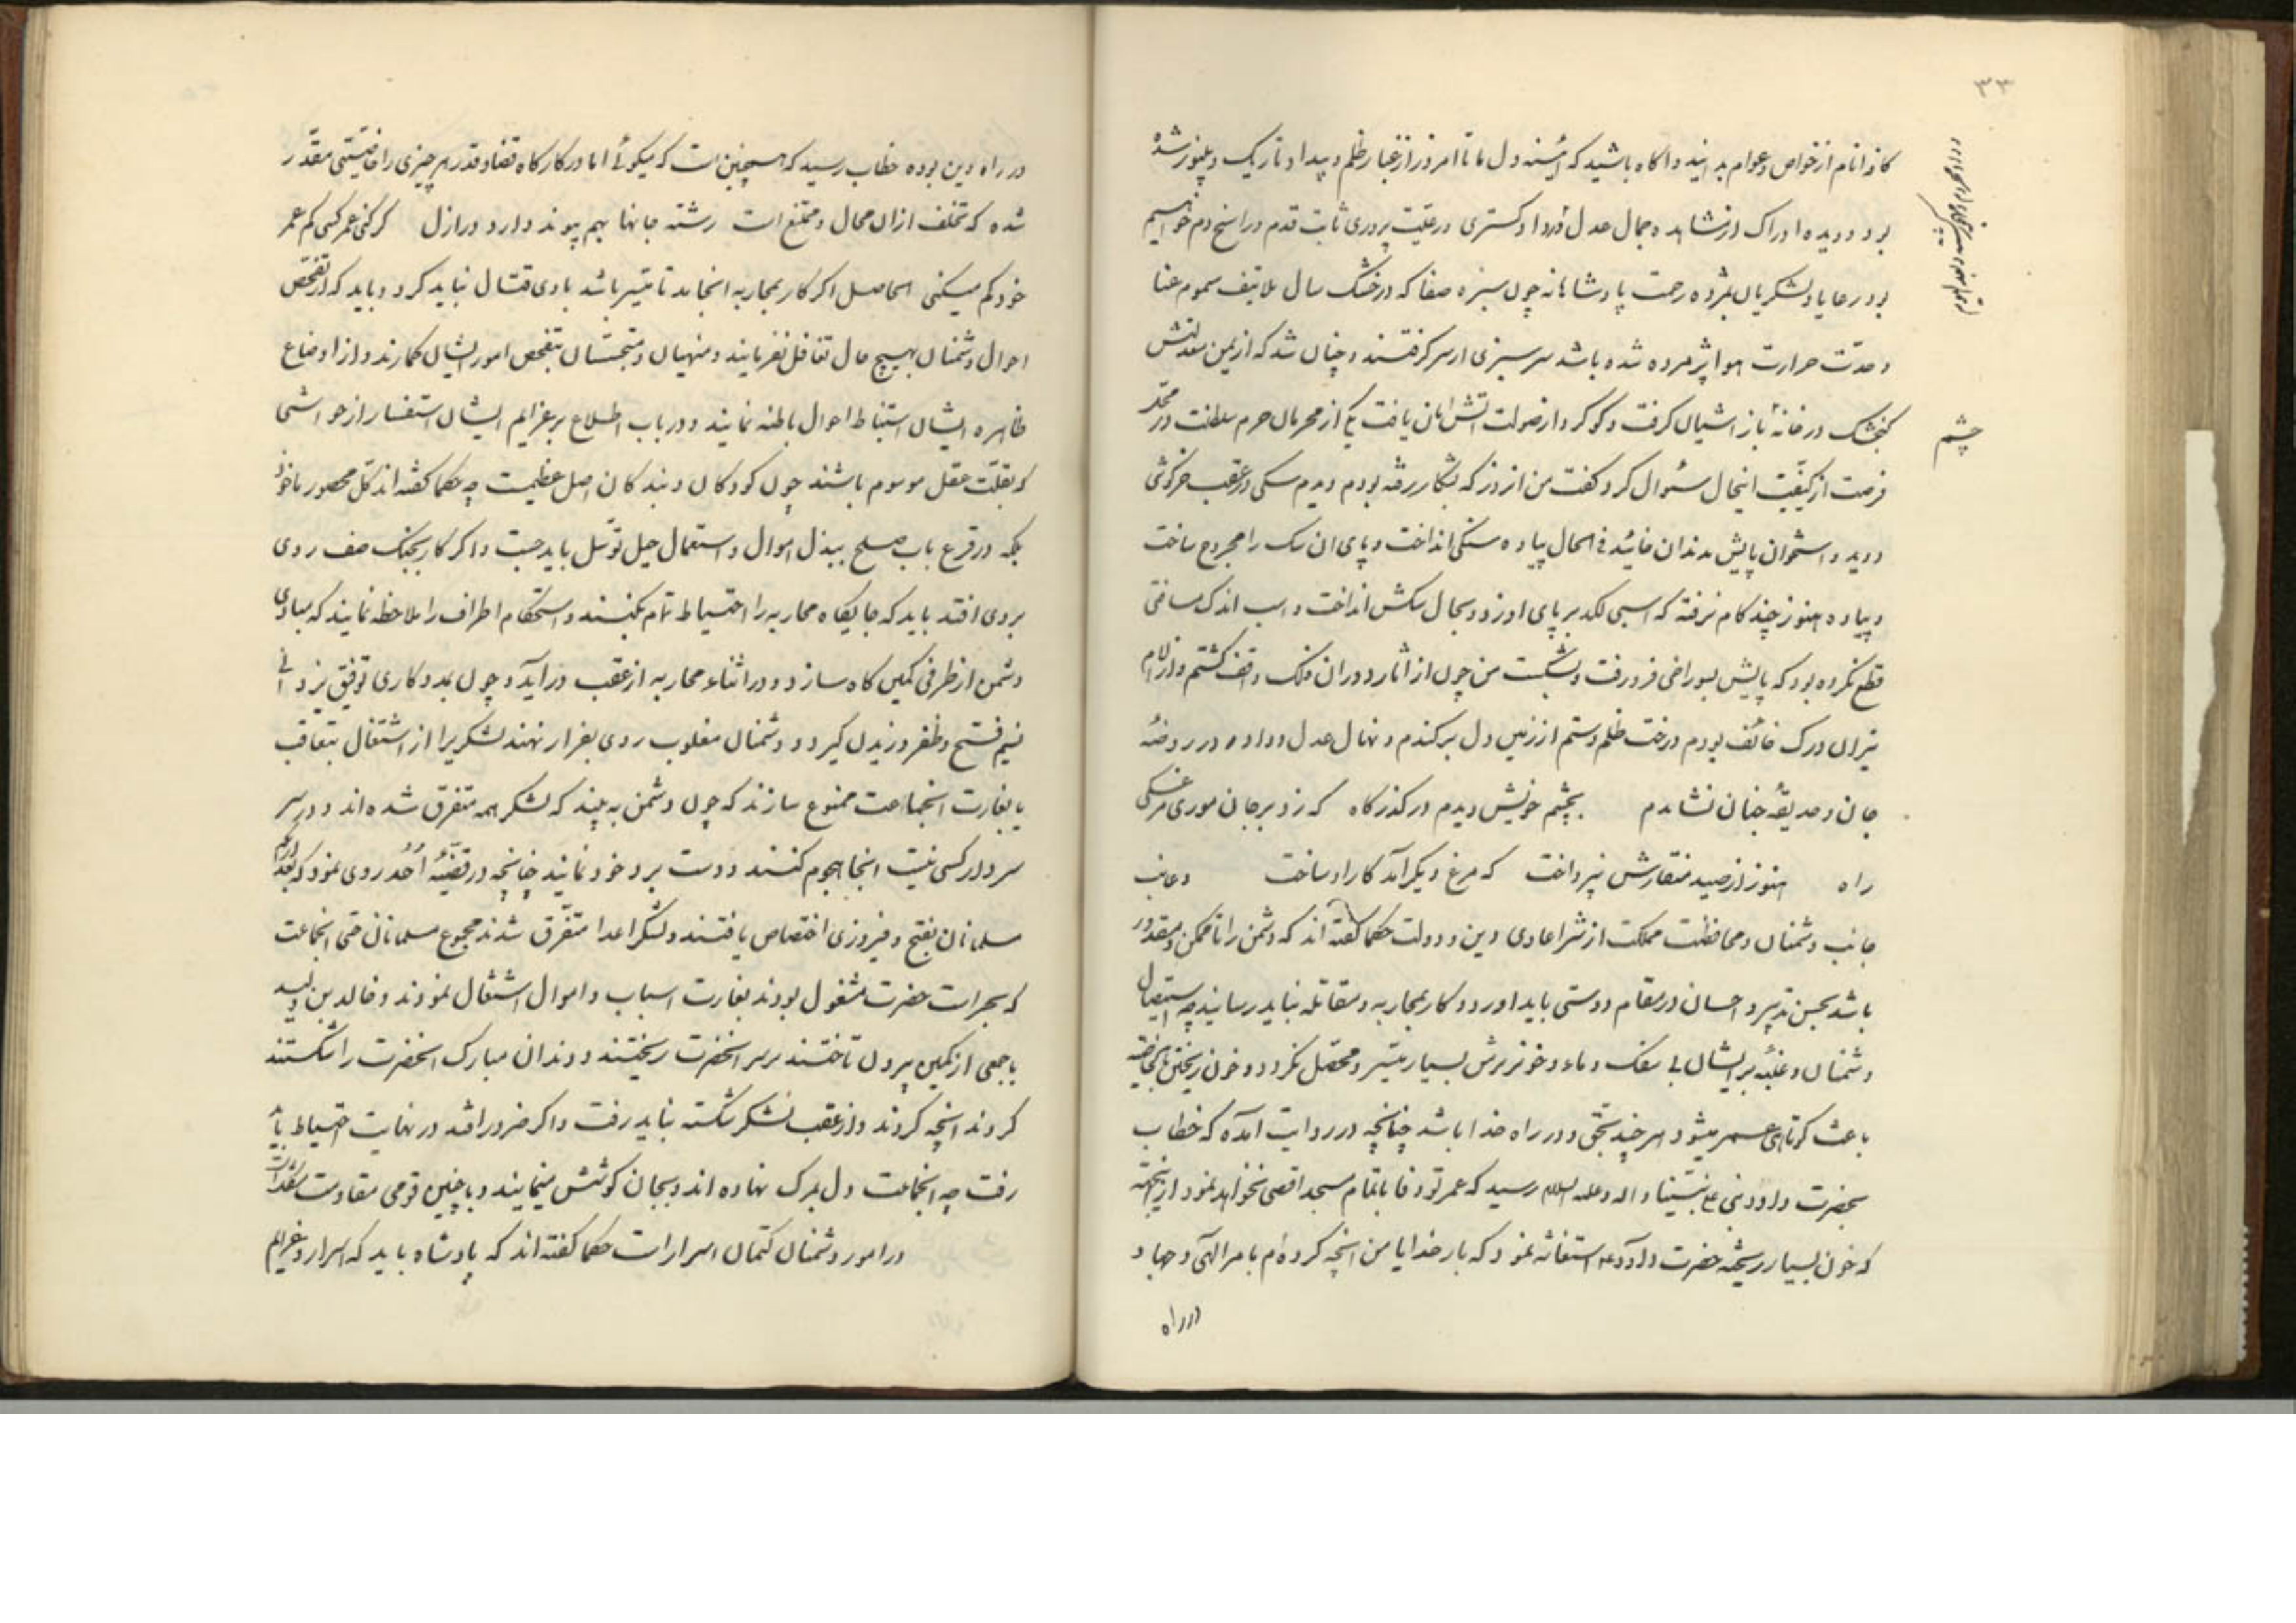 ۳۳
کافه انام از خواص و عوام بدانید و اگاه باشید که آئینه دل ما تا امروز از غبار ظلم و بیداد تاریک و بینور شده
بود و دیده ادراک از مشاهده جمال عدل و داد کستری و رعیت پروری ثابت قدم و راسخ دم خواهیم
بود رعایا و لشکریان بمژده رحمت پادشاهانه چون سبزه صفا که در خشک سال بلا بتف سموم عنا
و حدّت حرارت هوا پژمرده شده باشد سرسبزی از سر کرفتند و چنان شد که از یمن معدلتش
کنجشک در خانهٔ باز اشیان کرفت و کوکرد از صولت اتش امان یافت یکی از محرمان حرم سلطنت در محلّ
چشم
فرصت از کیفیّت اینحال سئوال کرد کفت من انروز که بشکار رفته بودم دیدم سکی در عقب خرکوشی
دوید و استخوان پایش بدندان خائید فی الحال پیاده سنکی انداخت و پای ان سک را مجروح ساخت
و پیاده هنوز چند کام نرفته که اسبی لکد بر پای او زد و بحال سکش انداخت و اسب اندک مسافتی
قطع نکرده بود که پایش بسوراخی فرو رفت و بشکست من چون از اثار دوران فلک واقف کشتم و از آلام
نیران درک خائف بودم درخت ظلم و ستم از زمین دل برکندم و نهال عدل و داد در روضهٔ
جان و حدیقهٔ جنان نشاندم بچشم خویش دیدم در کذرکاه که زد بر جان موری مرغکی
راه هنوز از صید منقارش نپرداخت که مرغ دیکر آمد کار او ساخت
جانب دشمنان و محافظت مملکت از شر اعادی دین و دولت حکما کفته اند که دشمن را تا ممکن و مقدور
باشد بحسن تدبیر و احسان در مقام دوستی باید اورد و کار بمحاربه و مقاتله نباید رسانید چه استیصال
دشمنان و غلبه بر ایشان بی سفک دماء و خونریزش بسیار میّسر و محصّل نکردد و خون ریختن بالخاصیه
باعث کوتاهی عمر میشود هر چند بحق و در راه خدا باشد چنانچه در روایت آمده که خطاب
بحضرت داود نبی علی نبیّنا و اله و علیه السلام رسید که عمر تو وفا باتمام مسجد اقصی نخواهد نمود از اینجهته
که خون بسیار ریخته حضرت داود ع استغاثه نمود که بار خدایا من انچه کرده ام بامر الهی و جهاد
در راه
در راه دین بوده خطاب رسید که همچنین است که میکوئی اما در کارکاه قضا و قدر هر چیزی را خاصیّتی مقدّر
شده که تخلف از ان محال و ممتنع است رشته جانها بهم پیوند دارد در ازل کر کنی عمر کسی کم عمر
خود کم میکنی الحاصل اکر کار بمحاربه انجامد تا میّسر باشد بادی قتال نباید کرد و باید که از تفحّص
احوال دشمنان بهیچ حال تغافل نفرمایند و منهیان و متجسّسان بتفحص امور ایشان کمارند و از اوضاع
ظاهره ایشان استنباط احوال باطنه نمایند و در باب اطلاع بر عزایم ایشان استفسار از حواشی
که بقلّت عقل موسوم باشند چون کودکان و بندکان اصل عظیمست چه حکما کفته اند کلّ محصور ماخوذ
بلکه در قرع باب صلح ببذل اموال و استعمال حیل توسّل باید جست و اکر کار بجنک صف روی
بروی افتد باید که جایکاه محاربه را احتیاط تمام بکنند و استحکام اطراف را ملاحظه نمایند که مبادی
دشمن از طرفی کمین کاه سازد و در اثناء محاربه از عقب درآید و چون بمددکاری توفیق یزدانی
نسیم فتح و ظفر وزیدن کیرد و دشمنان مغلوب روی بفرار نهند لشکر یرا از اشتغال بتعاقب
یا بغارت انجماعت ممنوع سازند که چون دشمن به بیند که لشکر همه متفرق شده اند و در سر
سردار کسی نیست انجا هجوم کنند و دست برد خود نمایند چنانچه در قضیّهٔ اُحُد روی نمود که بعد از انکه
مسلمانان بفتح و فیروزی اختصاص یافتند و لشکر اعدا متفرّق شدند مجموع مسلمانان حتی انجماعت
که بحراست حضرت مشغول بودند بغارت اسباب و اموال اشتغال نمودند و خالد بن ولید
با جمعی از کمین بیرون تاختند بر سر انحضرت ریختند و دندان مبارک انحضرت را شکستند
کردند انچه کردند و از عقب لشکر شکسته نباید رفت و اکر ضرور افتد در نهایت احتیاط باید
رفت چه انجماعت دل بمرک نهاده اند و بجان کوشش مینمایند و با چنین قومی مقاومت
در امور دشمنان کتمان اسرار است حکما کفته اند که پادشاه باید که اسرار و عزایم